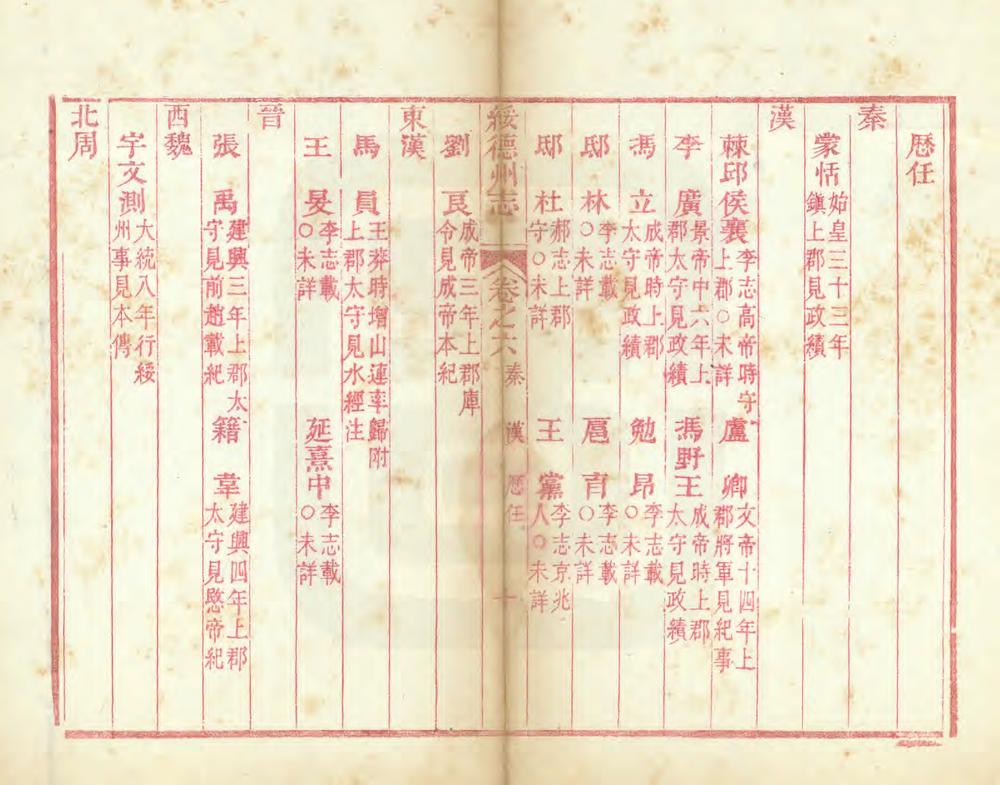 歷任
秦
蒙恬始皇三十三年鎮上郡見政績
漢
棘邱侯襄李志高帝時守上郡○未詳 盧卿文帝十四年上郡將軍見紀事
李廣景帝中六年上郡太守見政績 馮野王成帝時上郡太守見政績
馮立成帝時上郡太守見政績 勉昂李志載○未詳
邸林李志載○未詳 扈育李志載○未詳
邸杜郝志上郡守○未詳 王黨李志京兆人○未詳
綏德州志 卷之六 秦 漢 歷任 十
劉良成帝三年上郡庫令見成帝本紀
東漢
馬員王莽時增山連率歸附上郡太守見水經注
王旻李志載○未詳 延熹中李志載○未詳
晉
張禹建興三年上郡太守見前趙載紀 籍韋建興四年上郡太守見愍帝紀
西魏
宇文測大統八年行綏州事見本傳
北周